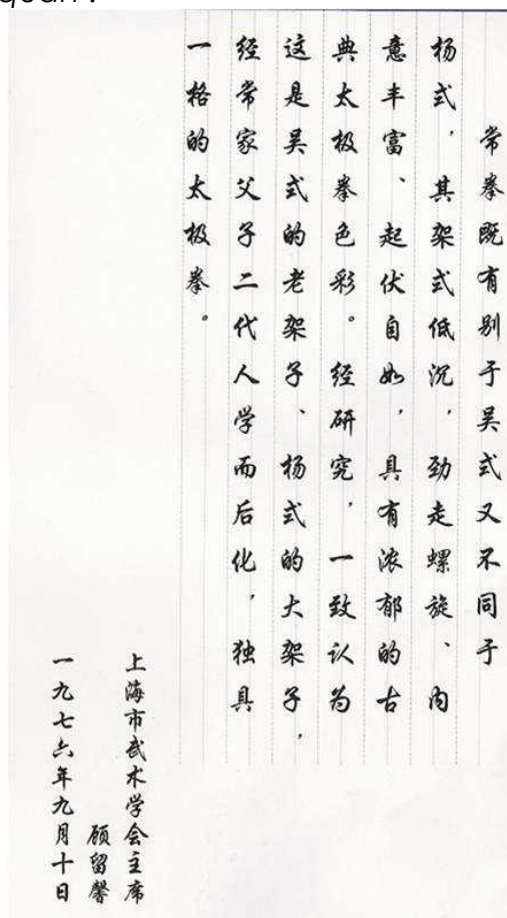 quan .
常拳既有别于吴式又不同于
杨式，其架式低沉，劲走螺旋、内
意丰富、起伏自如，具有浓郁的古
典太极拳色彩。经研究，一致认为
这是吴式的老架子、杨式的大架子，
经常家父子二代人学而后化，独具
一格的太极拳。
上海市武术学会主席
顾留馨
一九七六年九月十日